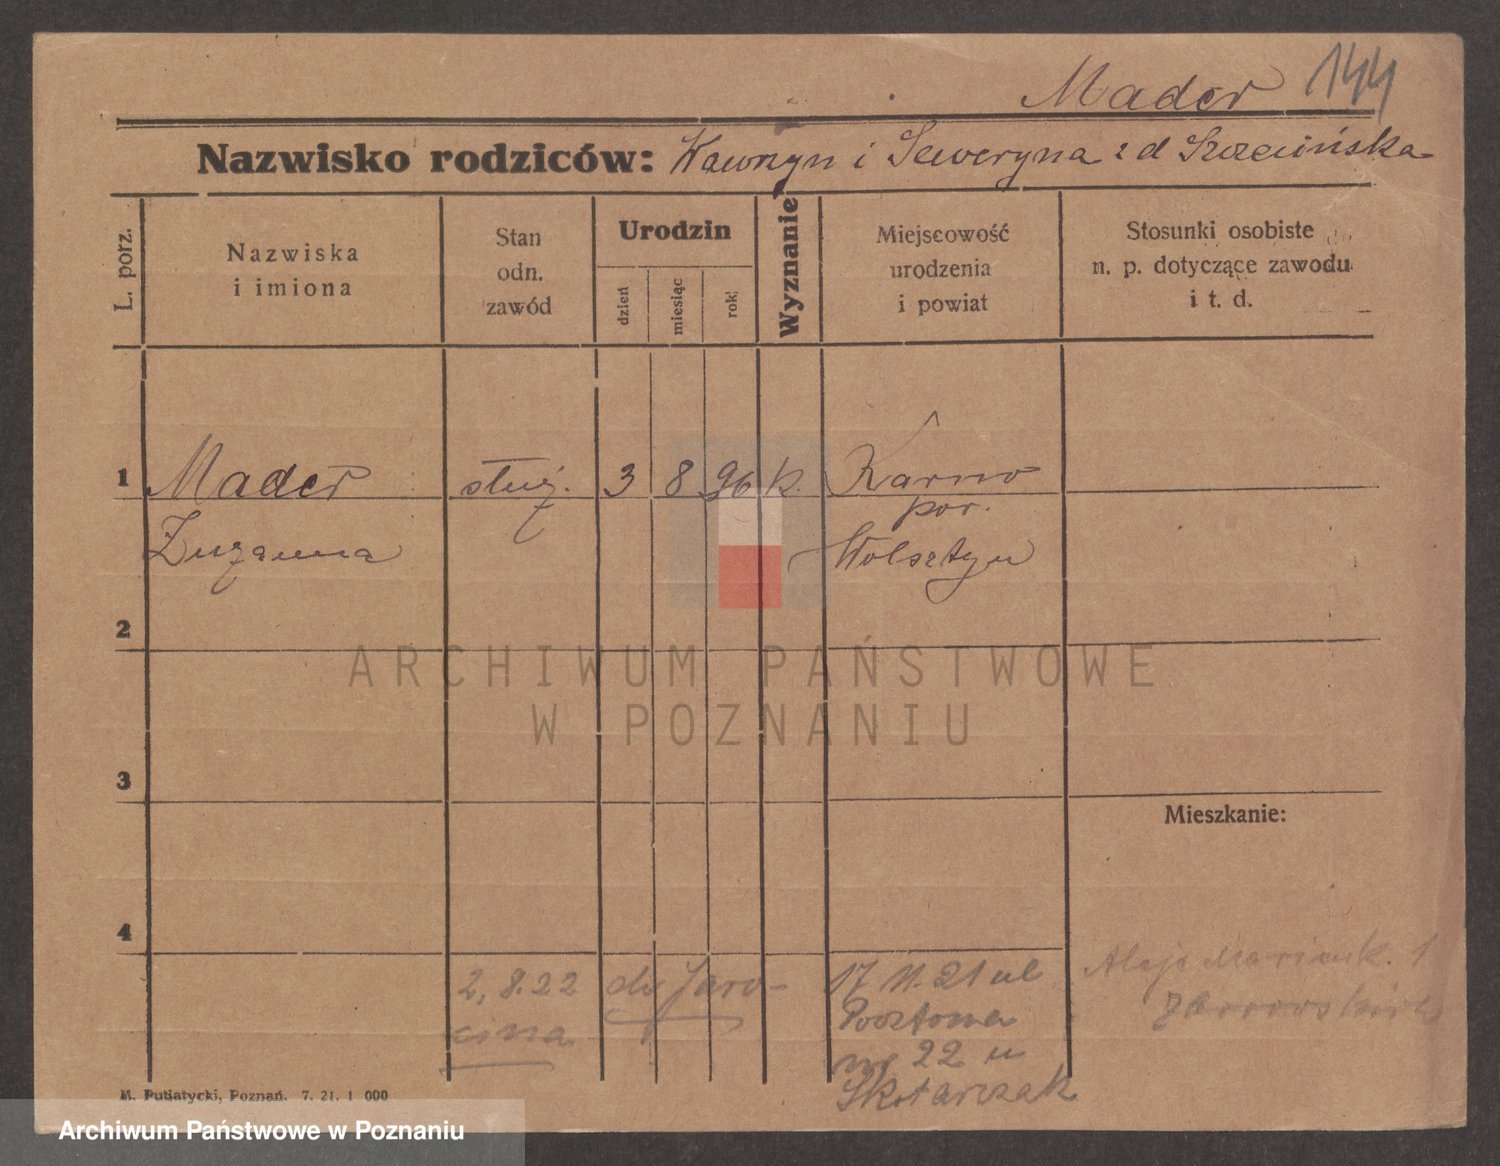 Mader 144
Nazwisko rodziców: Wawrzyn i Seweryna z d Szczecińska
L. porz.
Nazwiska
i imiona
Stan
odn.
zawód
Urodzin
dzień
miesiąc
rok
Wyznanie
Miejscowość
urodzenia
i powiat
Stosunki osobiste
n. p. dotyczące zawodu
i t. d.
1 Mader służ. 3 8 96 k. Karno
pow.
Zuzanna Wolsztyn
2
ARCHIWUM PAŃSTWOWE
W POZNANIU
3
Mieszkanie:
4
2, 8.22 do Jaro-
cina
17 11. 21 ul
Pocztowa
nr 22 u
Skotarczak
Aleje Marcink. 1
M. Putiatycki, Poznań. 7. 21. 1 000
Archiwum Państwowe w Poznaniu